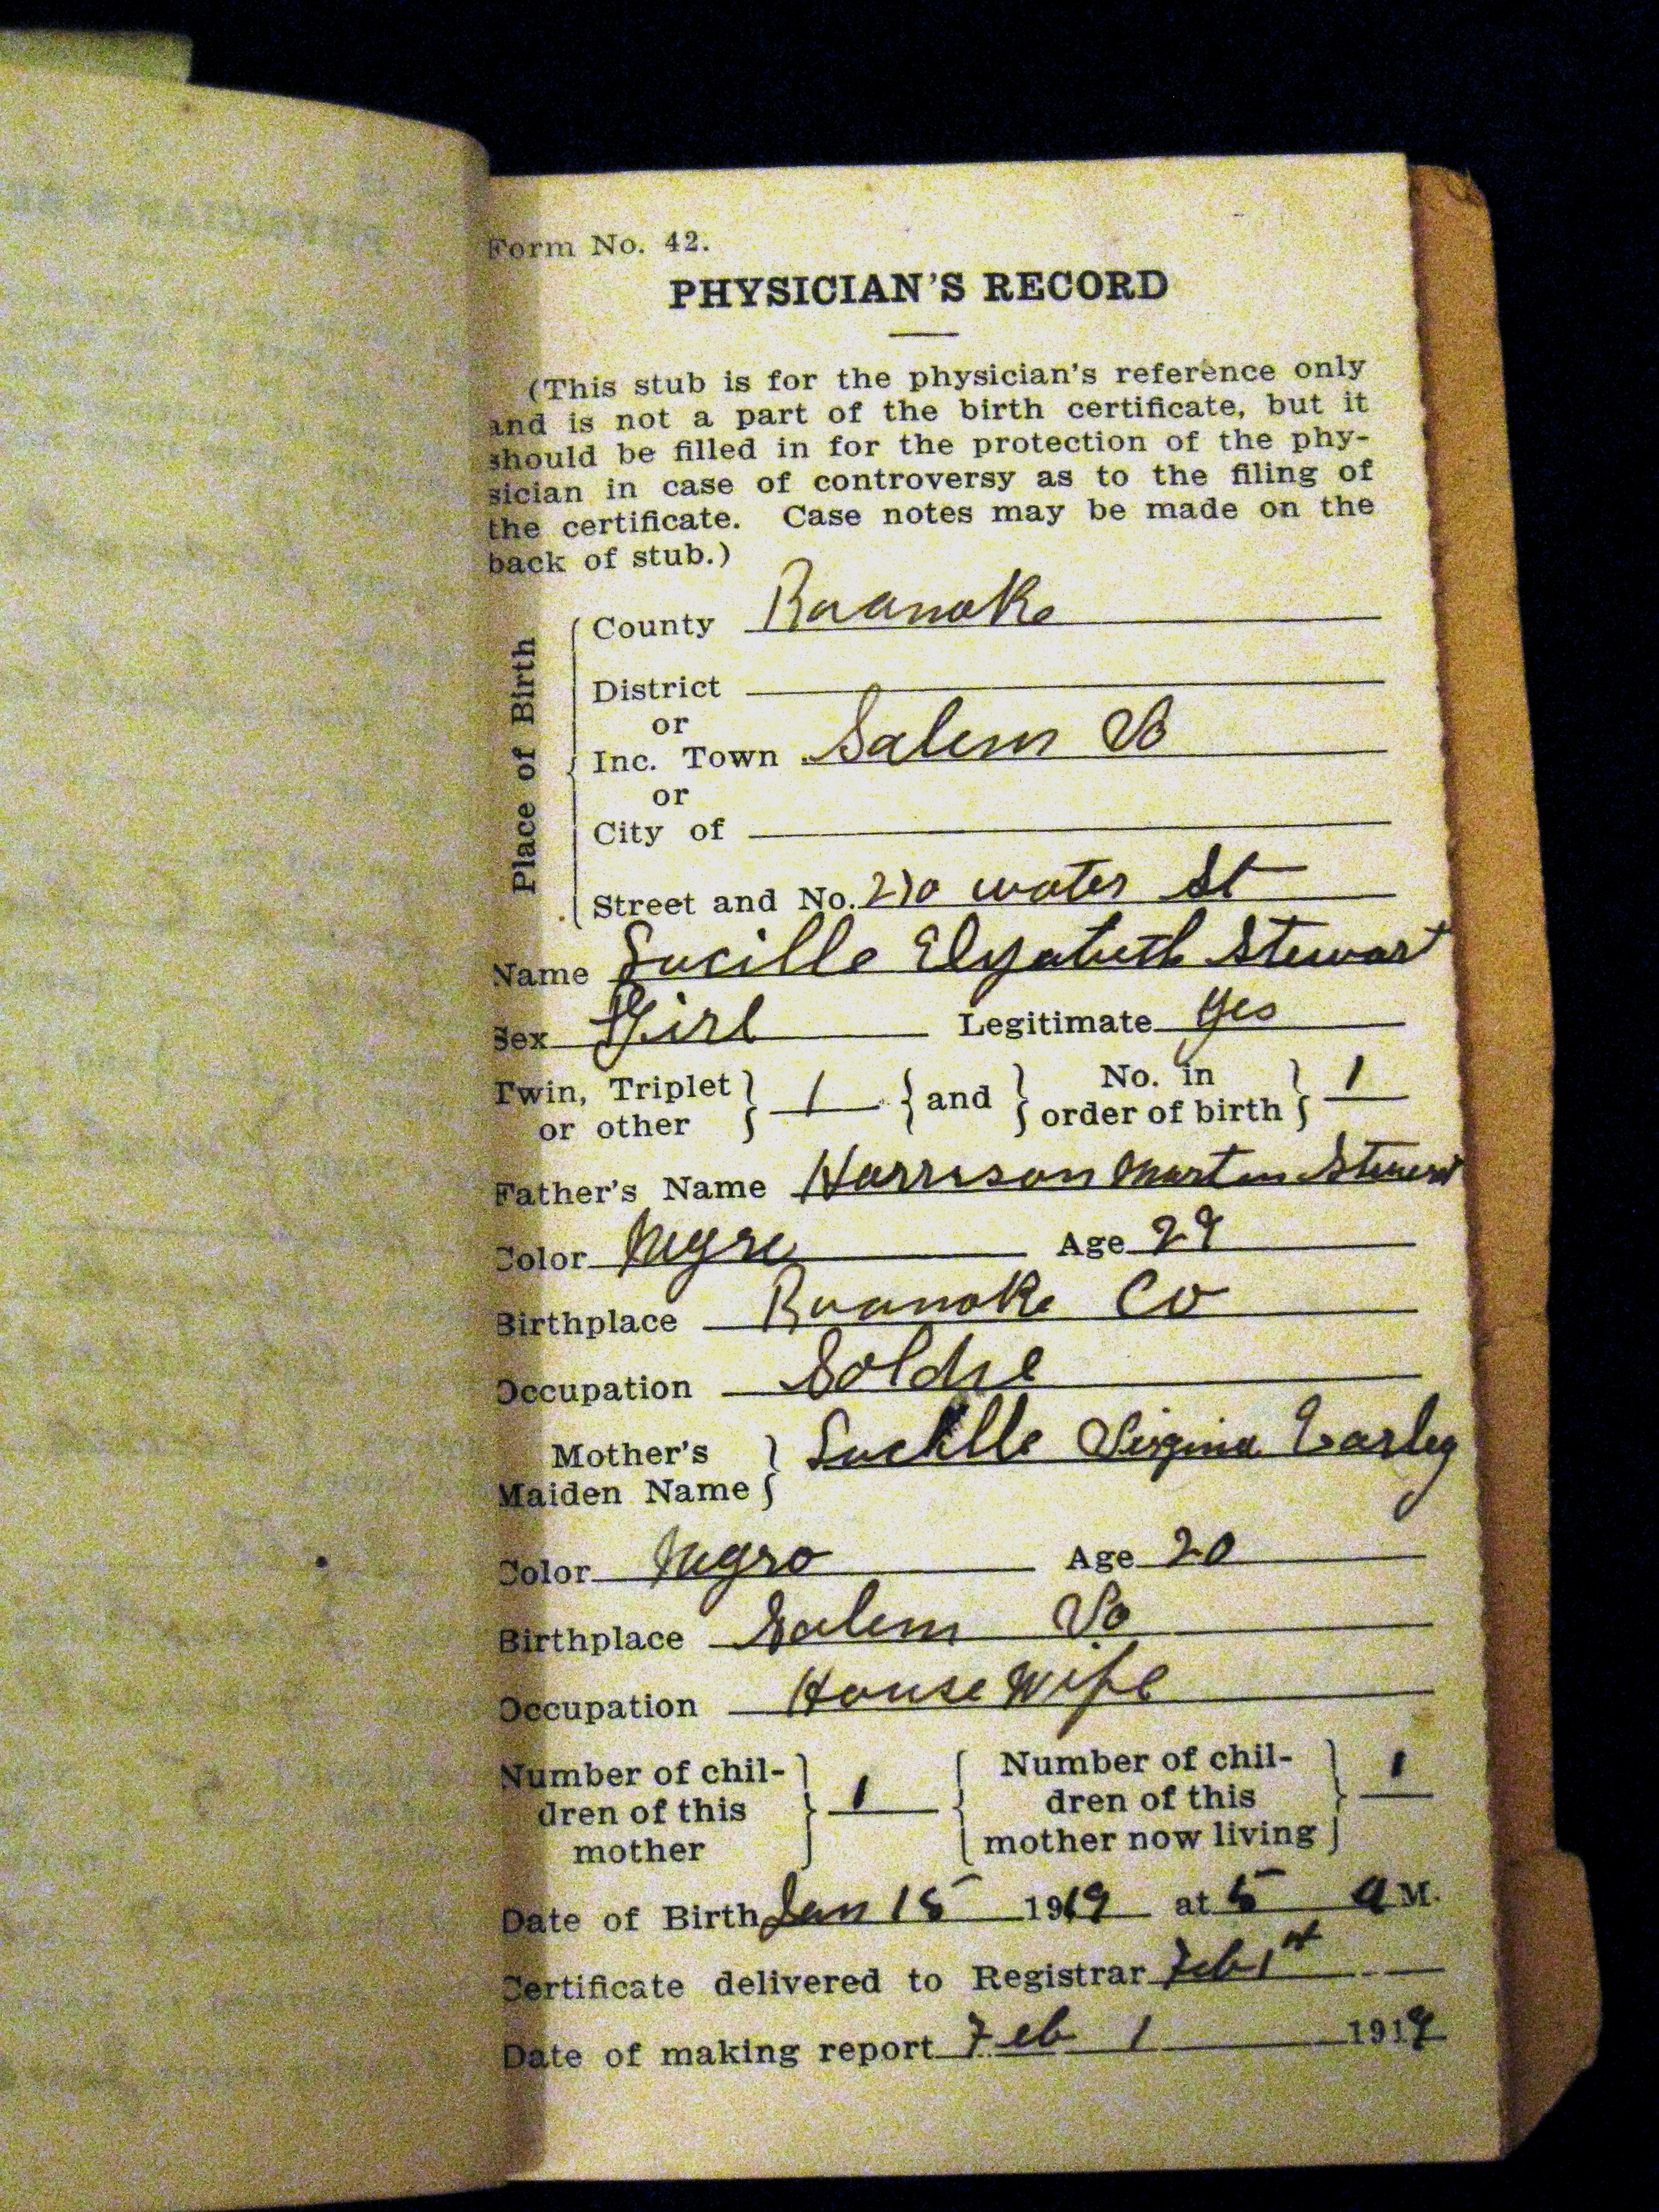 Form No. 42.
PHYSICIAN'S RECORD
(This stub is for the physician's reference only
and is not a part of the birth certificate, but it
should be filled in for the protection of the phy-
sician in case of controversy as to the filing of
the certificate. Case notes may be made on the
back of stub.)
Place of Birth
County Roanoke
District
or
Inc. Town Salem Va
or
City of
Street and No. 210 water St
Name Lucille Elyzabeth Stewart
Sex Girl Legitimate yes
Twin, Triplet or other } 1 { and } No. in order of birth } 1
Father's Name Harrison Martin Stewart
Color Negro Age 29
Birthplace Roanoke Co
Occupation Soldie
Mother's Maiden Name } Lucille Virginia Earley
Color Negro Age 20
Birthplace Salem Va
Occupation House Wife
Number of chil-dren of this mother } 1 { Number of chil-dren of this mother now living } 1
Date of Birth Jan 15 1919 at 5 a M.
Certificate delivered to Registrar Feb 1st
Date of making report Feb 1 1919